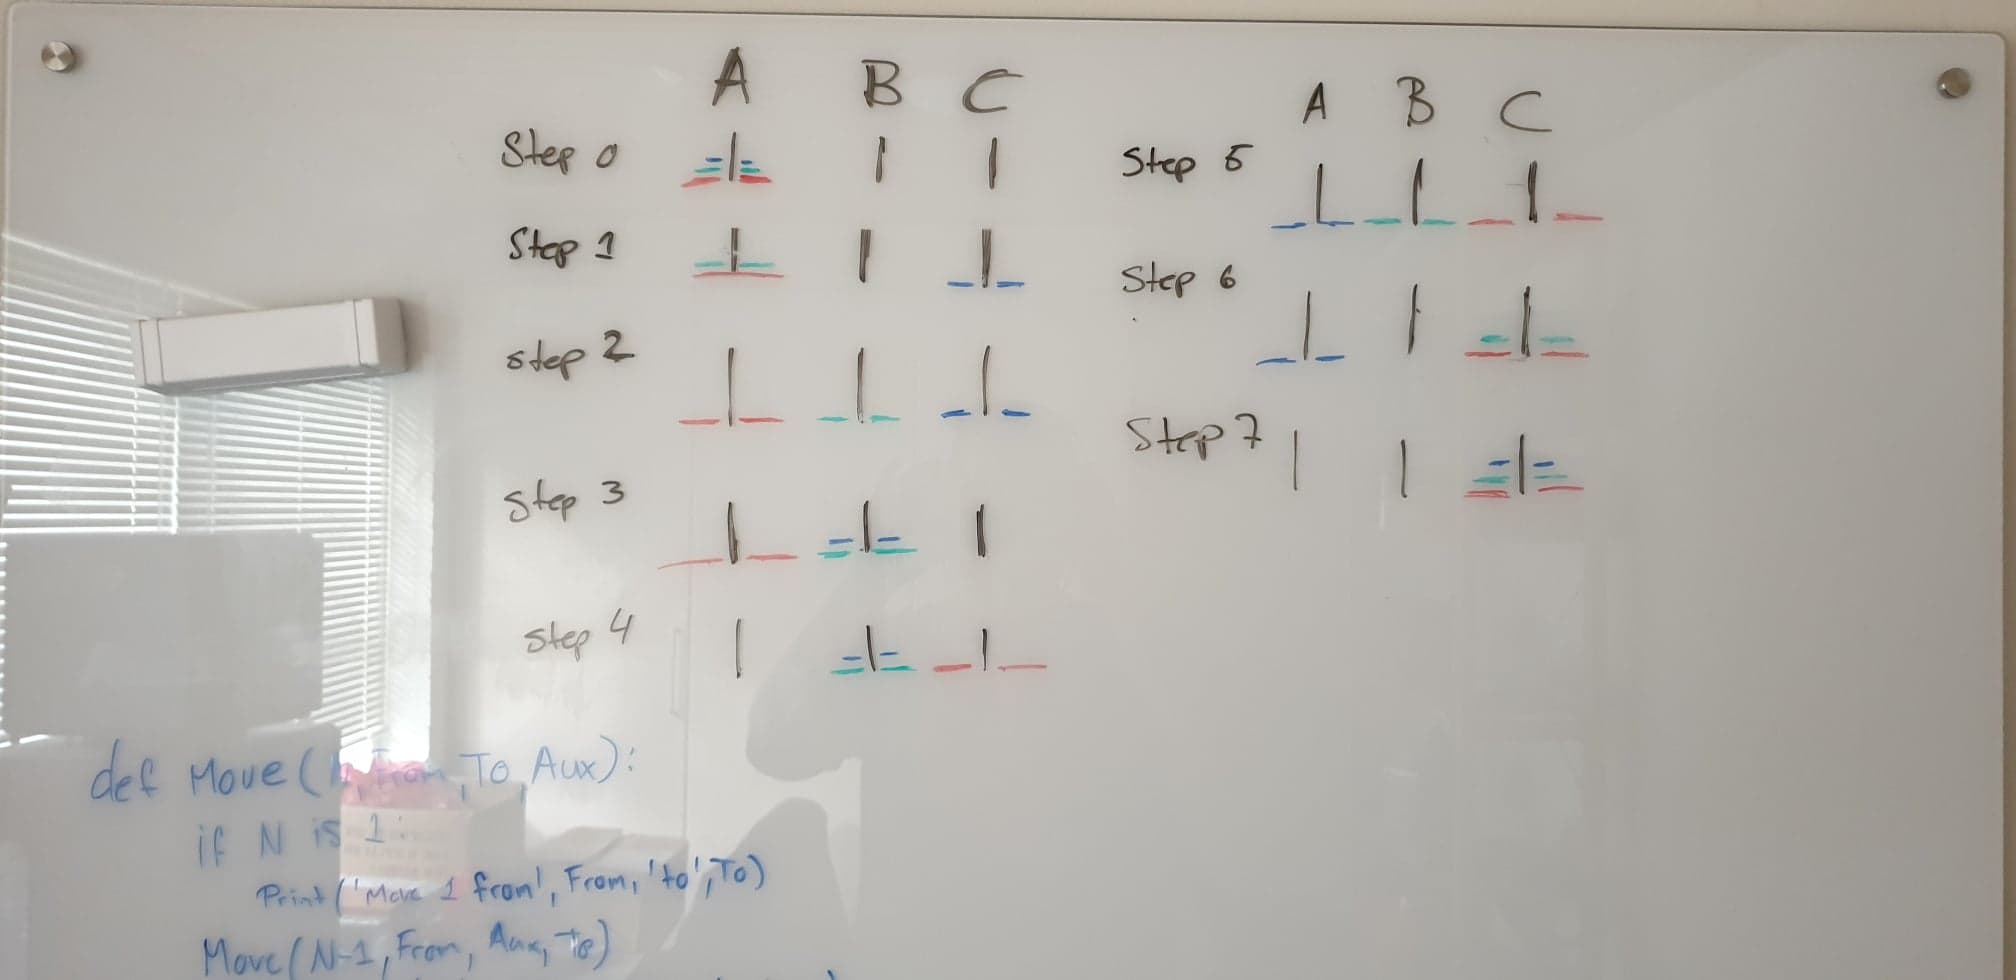 A B C
Step 0
Step 1
step 2
Step 3
step 4
A B C
Step 5
Step 6
Step 7
def Move(N, From, To, Aux):
if N is 1:
Print('Move 1 from', From, 'to', To)
Move(N-1, From, Aux, To)